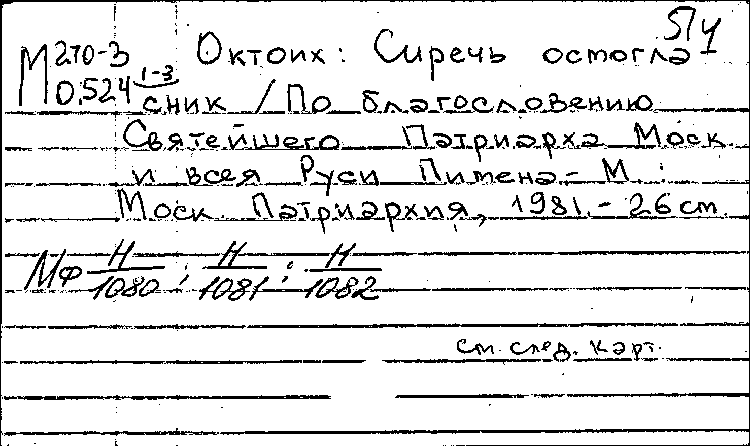 5/4
М 270-3 Октоих: Сиречь остогла
0,524 1-3 сник / По благословению
Святейшего Патриарха Моск
и всея Руси Пимена.- М.:
Моск Патриархия, 1981.- 26 cm
МФ Н/1080 ; Н/1081 ; Н/1082
см. след. карт.